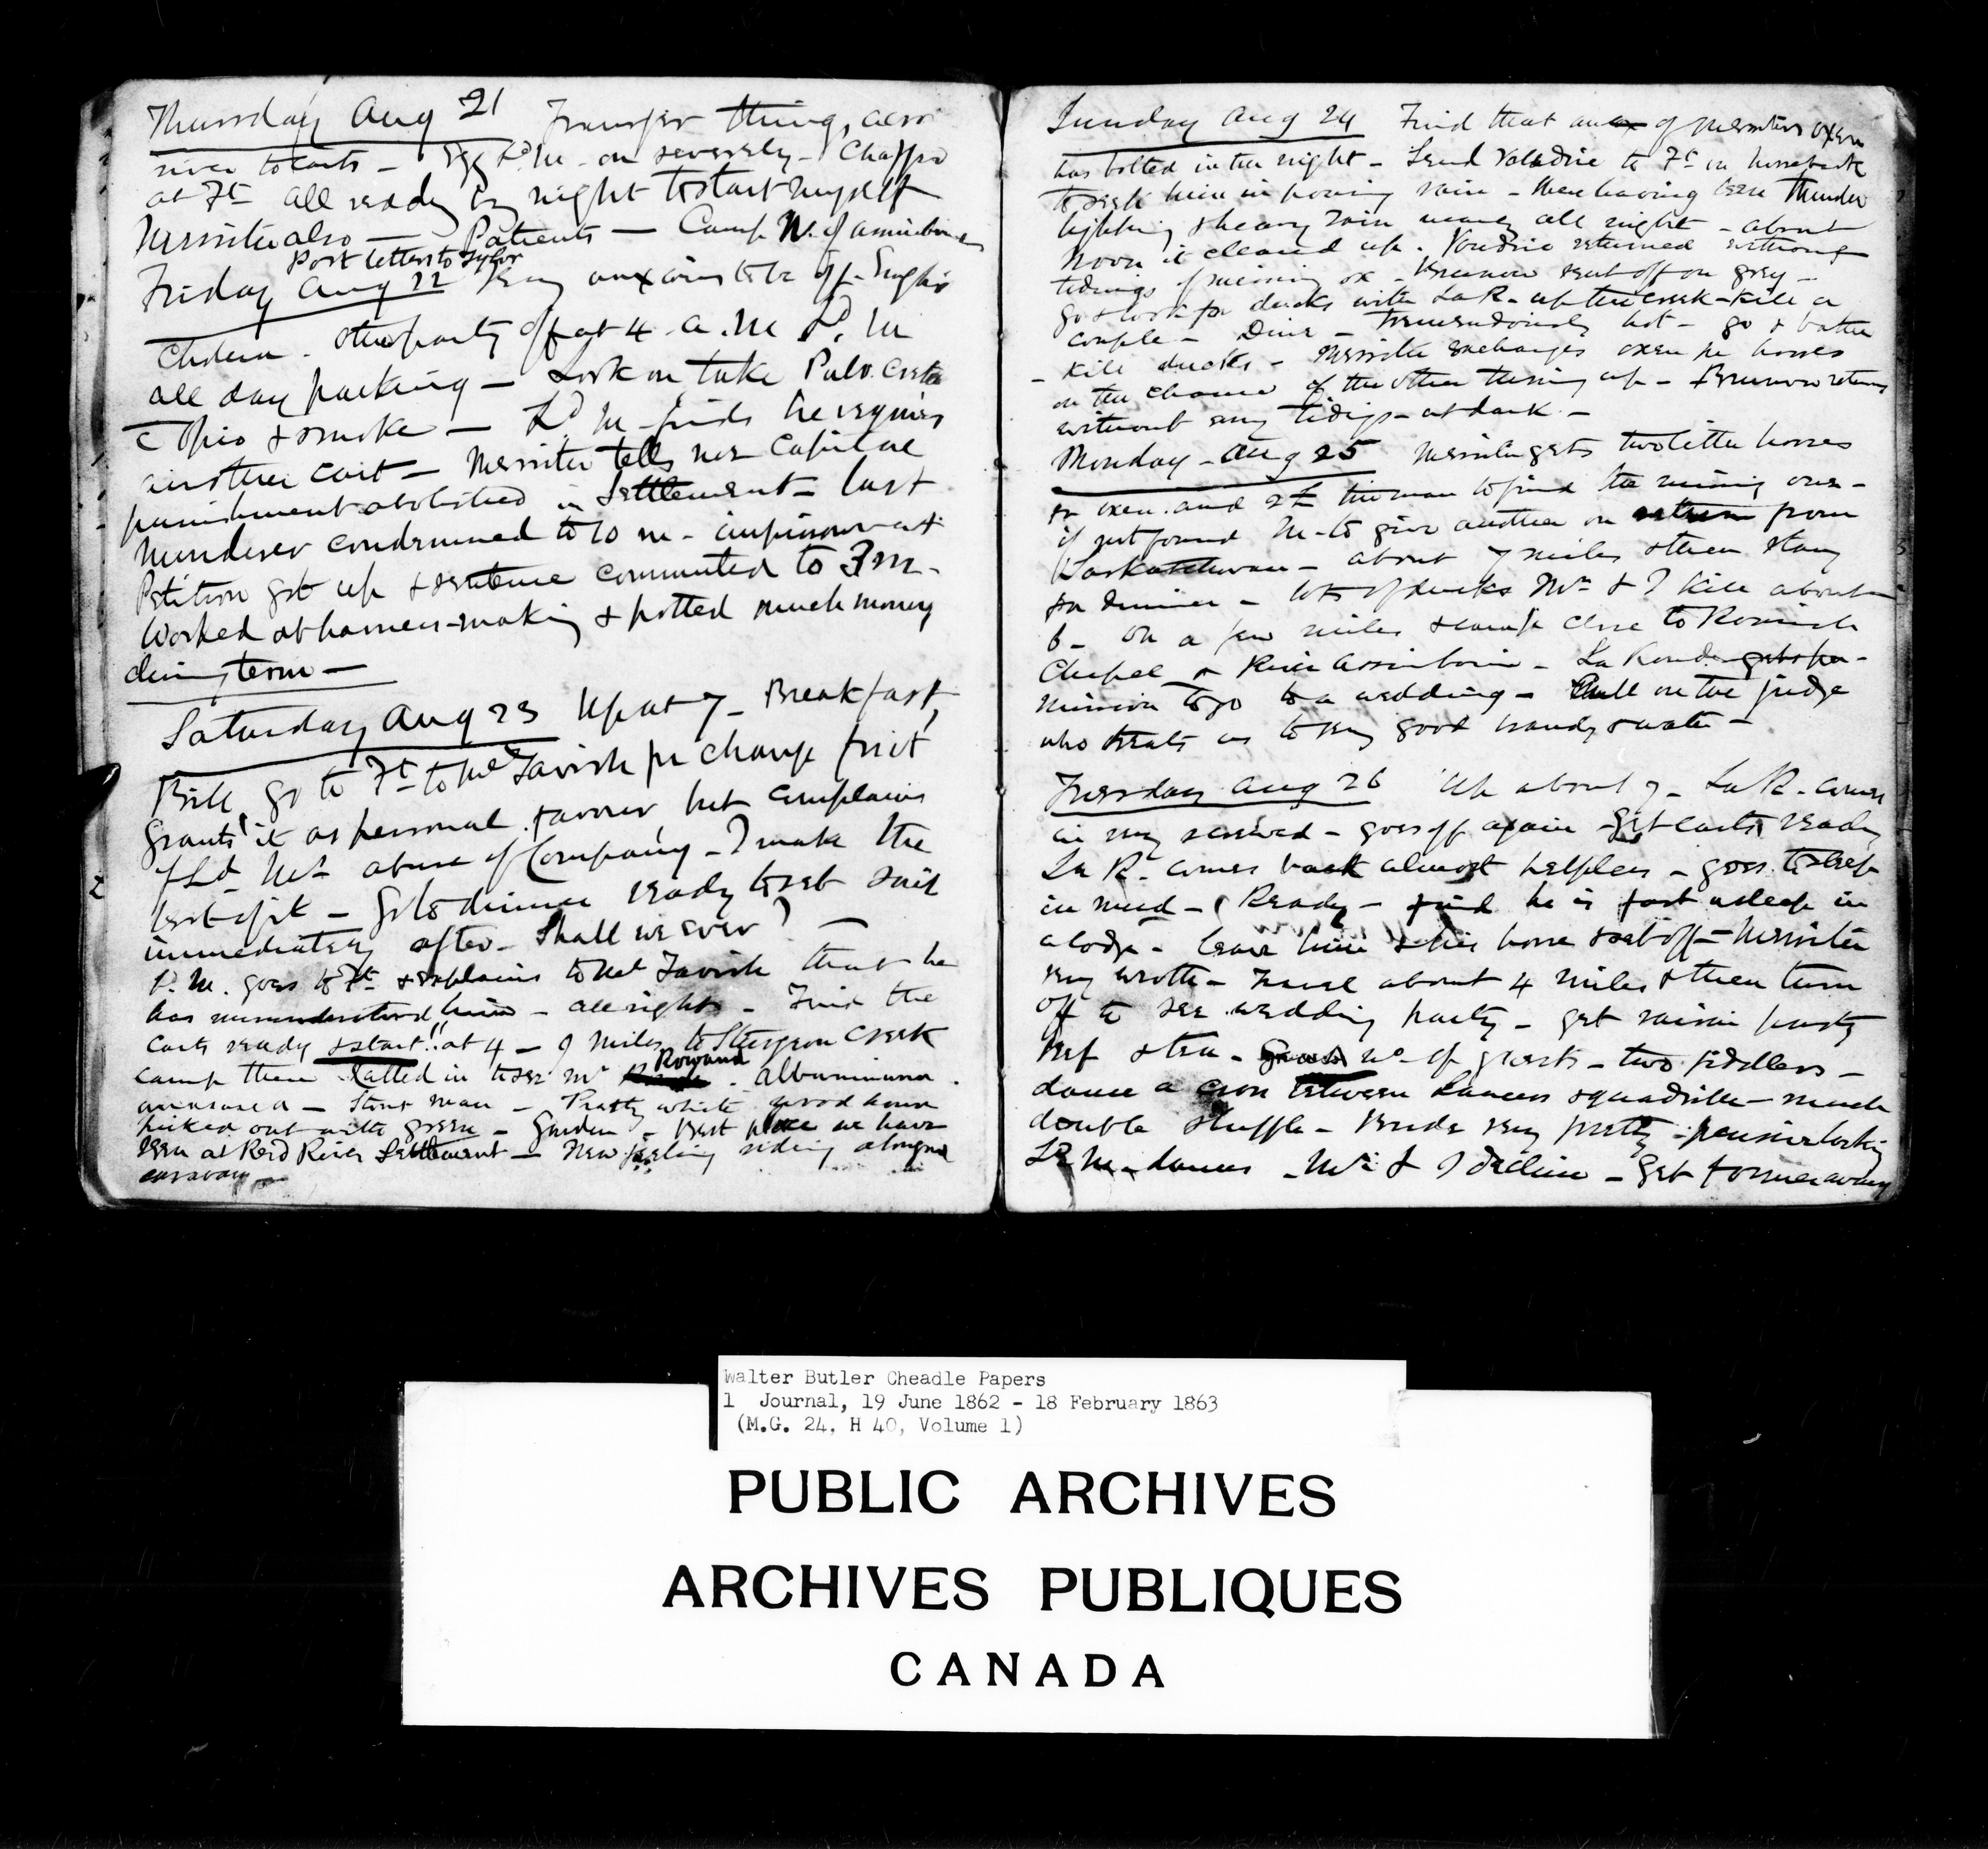 Thursday Aug 21 Transfer things across
river to carts - Egg Ld M. on severely - Chaffs
at Ft. all ready by night to start myself
Messiter also — Patients — Camp W. of
Post letters to Taylor
Friday Aug 22 Very anxious to be off. English
Cholera. other party off at 4 a.m Ld. M
all day packing — Look on take Pulv. Creta
c Opio & smoke — Ld M finds he requires
another cart — Messiter tells me Capital
punishment abolished in Settlement - last
Murderer condemned to 10 m - imprisonment
Petition got up & sentence commuted to 3 m -
Worked at harness-making & potted much money
during term —
Saturday Aug 23 Up at 7 - Breakfast,
Bill, go to Ft. to McTavish for change first
Grants it as personal favour but complains
of Ld. M's abuse of Company - I make the
best of it - Go to dinner ready to set sail
immediately after - Shall we ever? —
L. M. goes to Ft. & explains to McTavish that he
has misunderstood him - all right - Find the
carts ready & start!! at 4 - 7 miles to Sturgeon Creek
camp there Called in to see Mr Rowand - Albuminuria.
- Stout man - Pretty white wood house
picked out with green - Garden - Best place we have
seen at Red River Settlement - New feeling riding alongside
caravan —
Sunday Aug 24 Find that an ox of Messiters oxen
has bolted in the night - Send Voudrie to Ft. on horseback
to seek him in pouring rain - there having been thunder
lightning & heavy rain nearly all night - about
Noon it cleared up. Voudrie returned without
tidings of missing ox - Bruneau sent off on grey -
Go & look for ducks with La R. up the creek - kill a
couple - Dine - Tremendously hot - go & bathe
- kill ducks - Messiter exchanges oxen for horses
on the chance of the other turning up - Bruneau returns
without any tidings - at dark -
Monday - Aug 25 Messiter gets two little horses
for oxen. and the man to find the missing ones -
if not found M - to give another on return from
Saskatchewan - about 7 miles & then stay
for dinner - lots of ducks Mr. & I kill about
6 - On a few miles & camp close to Romish
Chapel & River Assiniboin - La Ronde gets per-
mission to go to a wedding - Call on the judge
who treats us to very good brandy & water -
Tuesday Aug 26 Up about 7 - La R. comes
in very screwed - goes off again - get carts ready
La R. comes back almost helpless - goes to sleep
in mud - Ready - find he is fast asleep in
a lodge - leave him & his horse & set off - Messiter
very wroth - Travel about 4 miles & then turn
off to see wedding party - get raisin pasty
beef & tea - Great no. of guests - two fiddlers -
dance a cross between Lancers & quadrille - much
double shuffle - Bride very pretty - pensive looking
Ld M. dances - Mr. & I decline - get former away
Walter Butler Cheadle Papers
1 Journal, 19 June 1862 - 18 February 1863
(M.G. 24, H 40, Volume 1)
PUBLIC ARCHIVES
ARCHIVES PUBLIQUES
CANADA